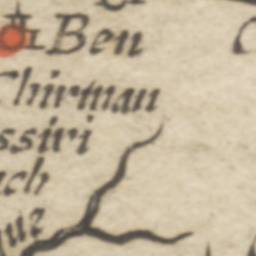 Ben
Chirman
ssiri
ach
que